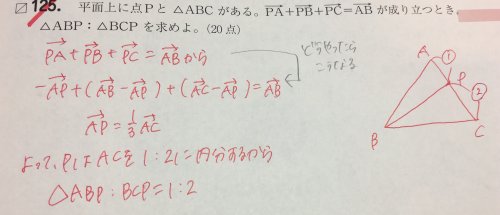 125. 平面上に点Pと△ABCがある。PA+PB+PC=ABが成り立つとき,
△ABP：△BCPを求めよ。(20点)
PA+PB+PC=ABから
どうやったら
こうなる
-AP+(AB-AP)+(AC-AP)=AB
AP=1/3AC
よって,PはACを1:2に内分するから
△ABP:BCP=1:2
A
①
P
②
B
C